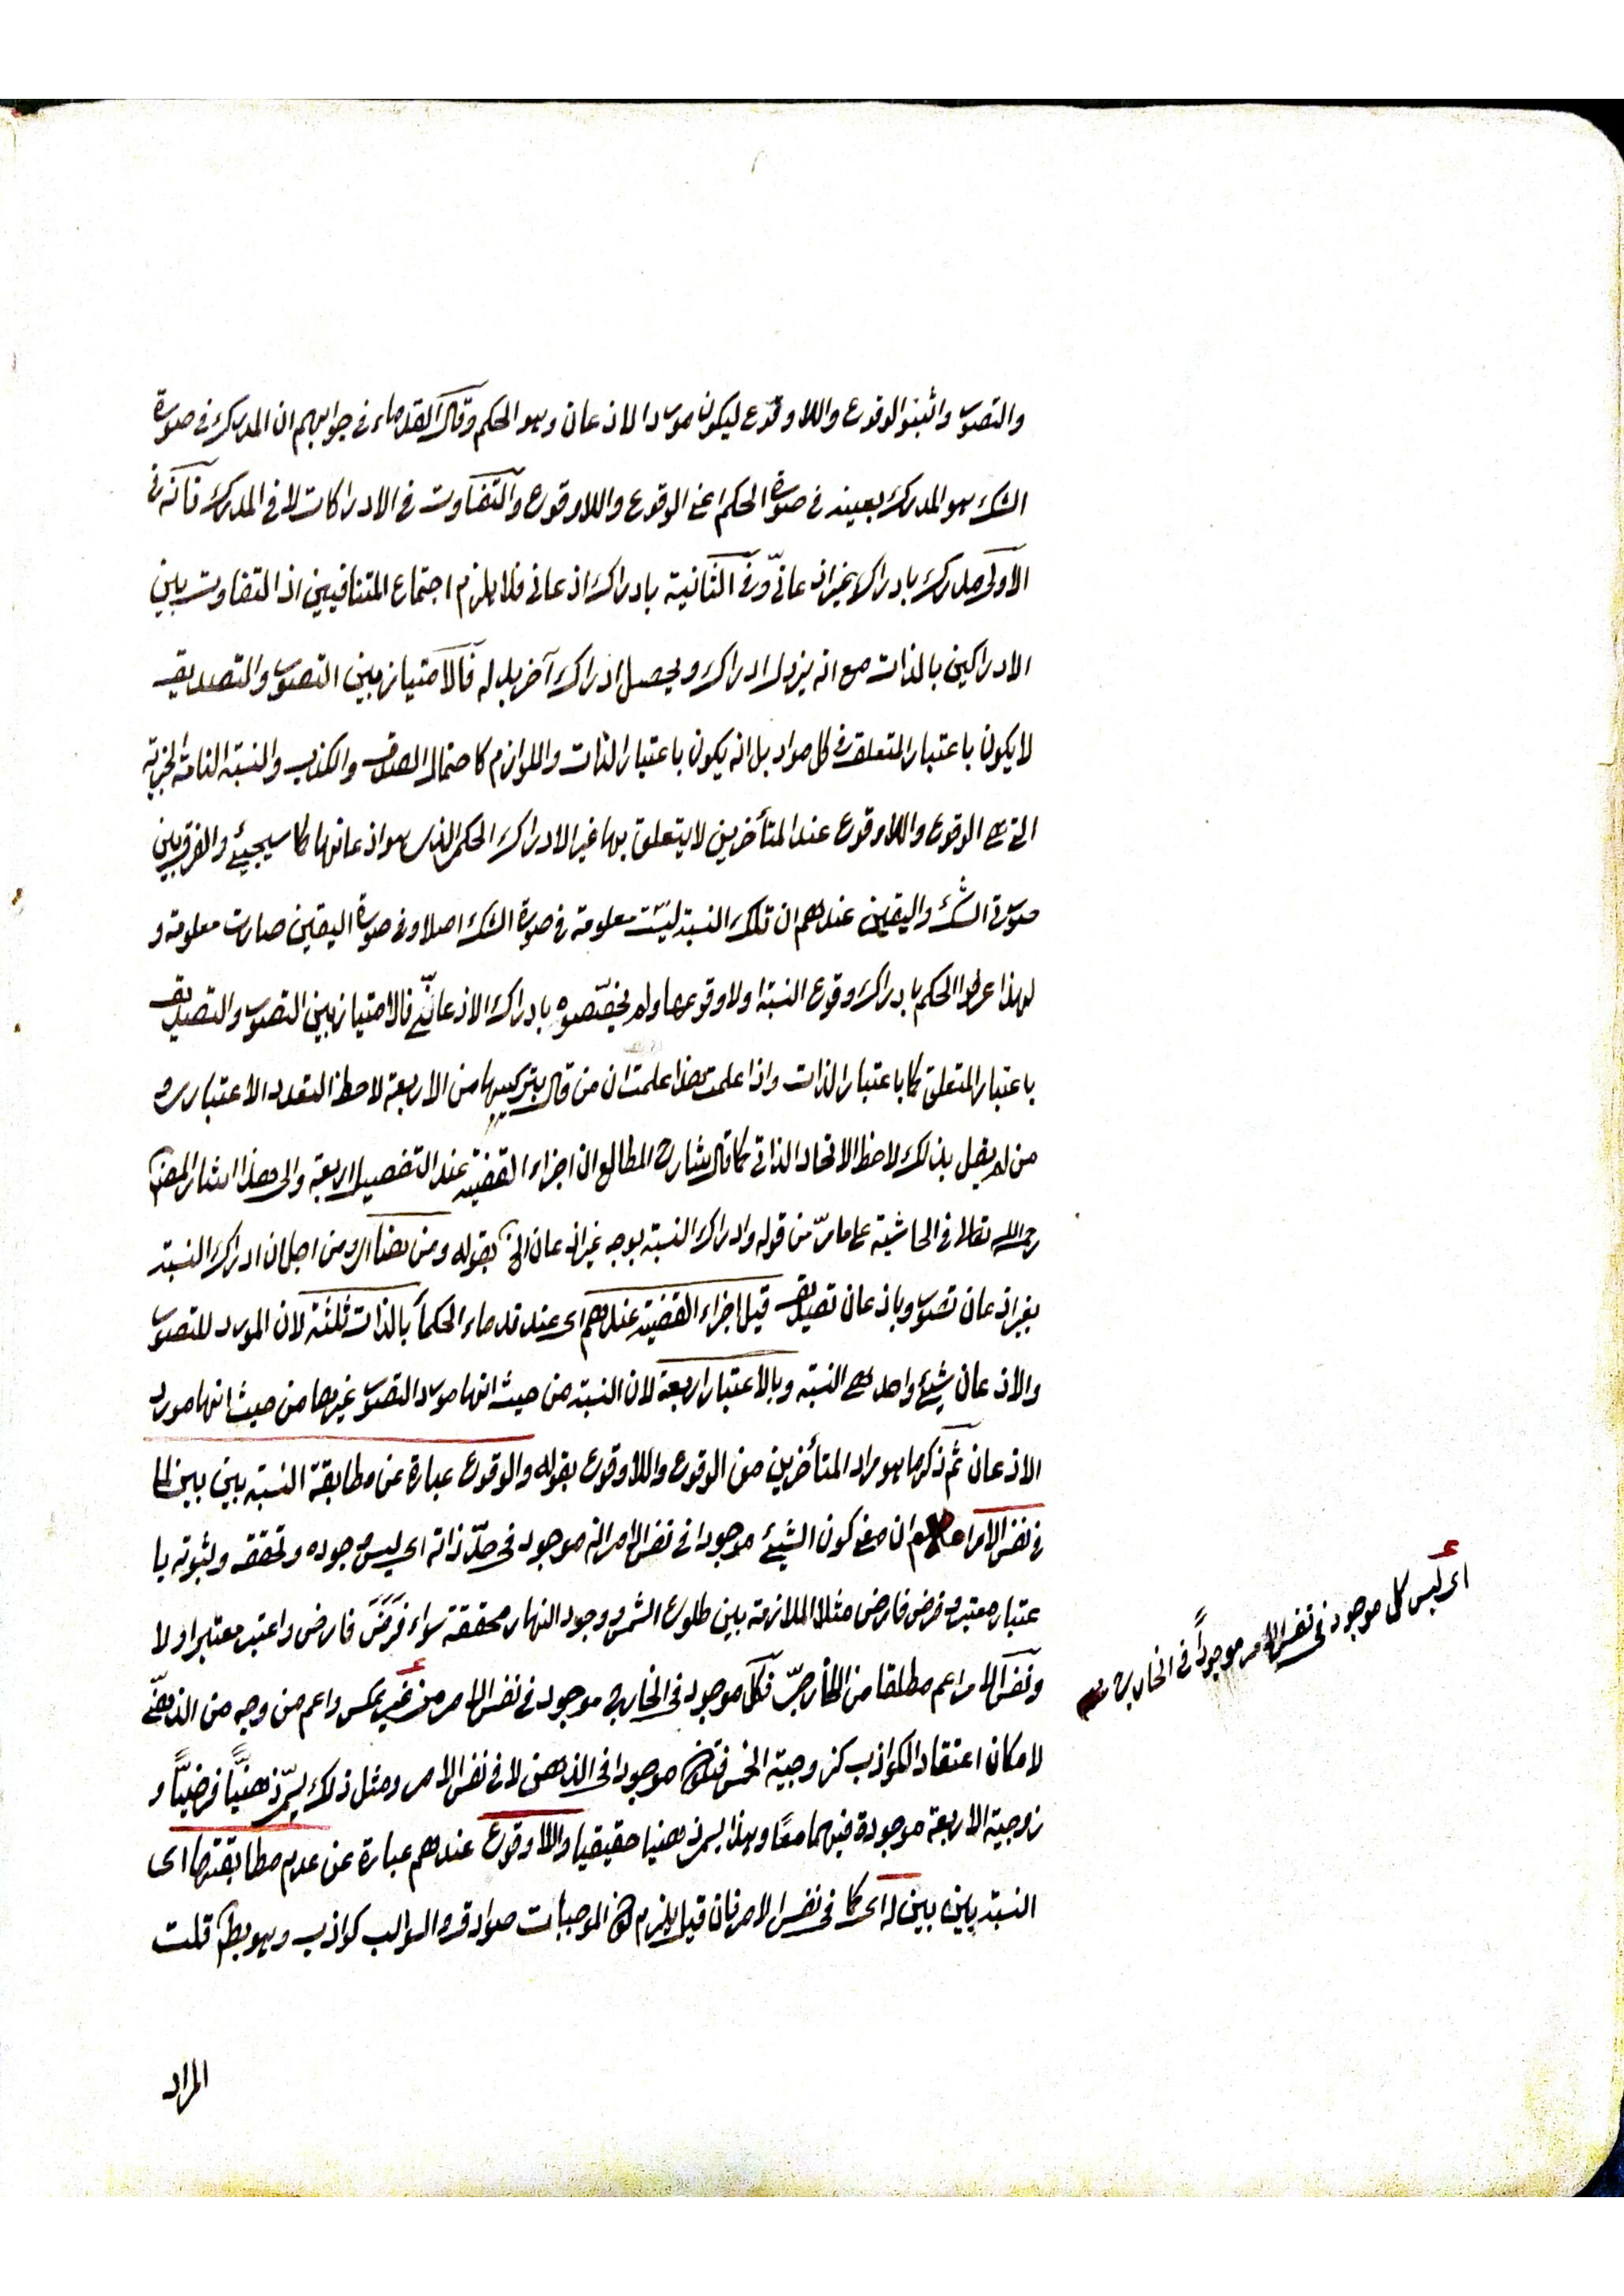 والتصور واثبتوا الوقوع واللا وقوع ليكون مورد الاذعان وهو الحكم وقال القدماء في جوابهم ان المدرك في صورة
الشك هو المدرك بعينه في صورة الحكم اعني الوقوع واللاوقوع والتفاوت في الادراكات لا في المدرك فانه في
الاولى مدرك بادراك غير اذعانيّ وفي الثانية بادراك اذعاني فلا يلزم اجتماع المتنافيين اذ التفاوت بين
الادراكين بالذات مع انه يزول ادراك ويحصل ادراك آخر بدله فالامتياز بين التصور والتصديق
لا يكون باعتبار المتعلق في كل مواد بل انه يكون باعتبار الذات واللوازم كاحتمال الصدق والكذب والنسبة التامة الخبرية
التي هي الوقوع واللاوقوع عند المتأخرين لا يتعلق بها غير الادراك الحكم الذي هو اذعانها كما سيجيئ والفرق بين
صورة الشك واليقين عندهم ان تلك النسبة ليست معلومة في صورة الشك اصلا وفي صورة اليقين صارت معلومة و
لهذا عرفوا الحكم بادراك وقوع النسبة اولا وقوعها ولم يخصّصوه بادراك الاذعانيّ فالامتياز بين التصور والتصديق
باعتبار المتعلق كما باعتبار الذات واذا علمت هذا علمت ان من قال بتركيبها من الاربعة لاحظ التعدد الاعتباري و
من لم يقل بذلك لاحظ الاتحاد الذاتي كما قال شارح المطالع ان اجزاء القضية عند التفصيل اربعة والى هذا اشار المصنف
رحمه الله تعالى في الحاشية على ما مرّ من قوله وادراك النسبة بوجه غير اذعان الخ بقوله ومن هنا اى ومن اجل ان ادراك النسبة
بغير اذعان تصور وباذعان تصديق قيل اجزاء القضية عندهم اى عند قدماء الحكماء بالذات ثلثة لان المورد للتصور
والاذعان شيئ واحد هي النسبة وبالاعتبار اربعة لان النسبة من حيث انها مورد التصور غيرها من حيث انها مورد
الاذعان ثم ذكر ما هو مراد المتأخرين من الوقوع واللاوقوع بقوله والوقوع عبارة عن مطابقة النسبة بين بين لما
في نفس الامر اعلم ان معنى كون الشيئ موجودا في نفس الامر انه موجود في حدّ ذاته اى ليس وجوده وتحققه وثبوته با
عتبار معتبر وفرض فارض مثلا الملازمة بين طلوع الشمس ووجود النهار محققة سواء فَرَضَ فارض واعتبر معتبر او لا
ونفس الامر اعم مطلقا من الخارجيّ فكل موجود في الخارج موجود في نفس الامر من غير عكس واعم من وجه من الذهنيّ
لامكان اعتقاد الكواذب كزوجية الخمس فتكون موجودا في الذهن لا في نفس الامر ومثل ذلك يسمّى ذهنيًّا فرضيًّا و
زوجية الاربعة موجودة فيهما معًا وهذا يسمى ذهنيا حقيقيا واللاوقوع عندهم عبارة عن عدم مطابقتها اى
النسبة بين بين له اى لما في نفس الامر فان قيل يلزم كون الموجبات صوادق والسوالب كواذب وهو بط قلت
المراد
اى ليس كل موجود في نفس الامر موجوداً في الخارج